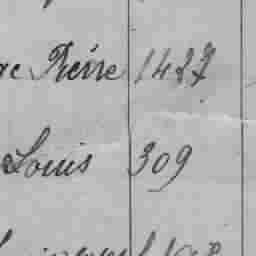 re Pierre 1427
Louis 309